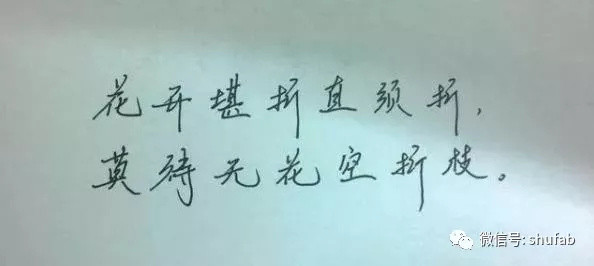 花开堪折直须折，
莫待无花空折枝。
微信号: shufab